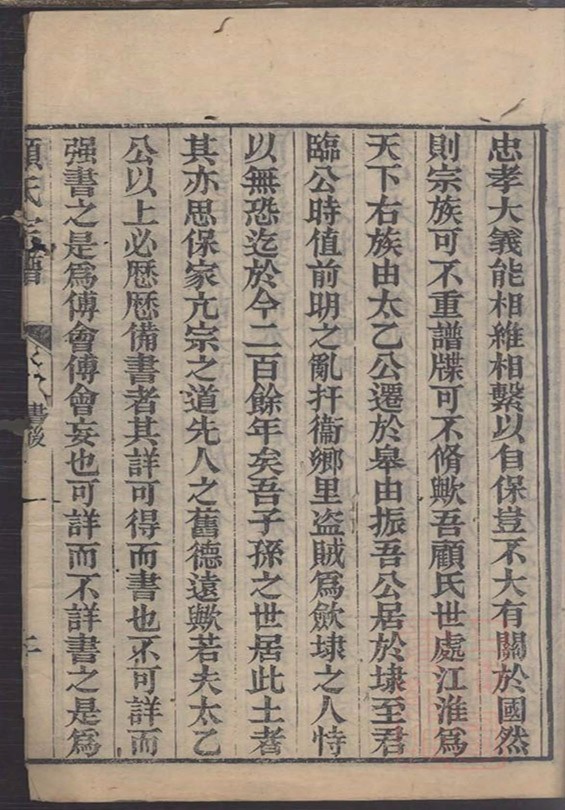 忠孝大義能相維相繫以自保豈不大有關於國然
則宗族可不重譜牒可不脩歟吾顧氏世處江淮為
天下右族由太乙公遷於皋由振吾公居於埭至君
臨公時值前明之亂扞衞鄉里盜賊為斂埭之人恃
以無恐迄於今二百餘年矣吾子孫之世居此土者
其亦思保家亢宗之道先人之舊德遠歟若夫太乙
公以上必歷歷備書者其詳可得而書也不可詳而
强書之是為傅會傅會妄也可詳而不詳書之是為
顧氏宗譜
書後